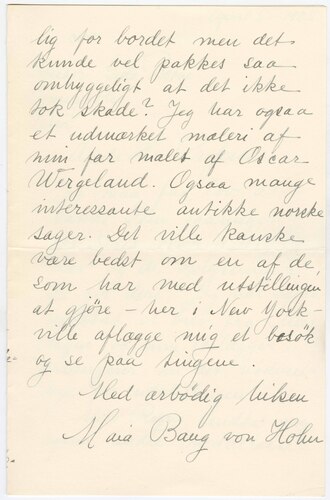 lig for bordet men det
kunde vel pakkes saa
omhyggeligt at det ikke
tok skade? Jeg har ogsaa
et udmærket maleri af
min far malet af Oscar
Wergeland. Ogsaa mange
interessante antikke norske
sager. Det ville kanske
være bedst om en af de
som har med utstillingen
at gjöre – her i New York –
ville aflægge mig et besök
og se paa tingene.
Med ærbödig hilsen
Maia Bang von Hohn